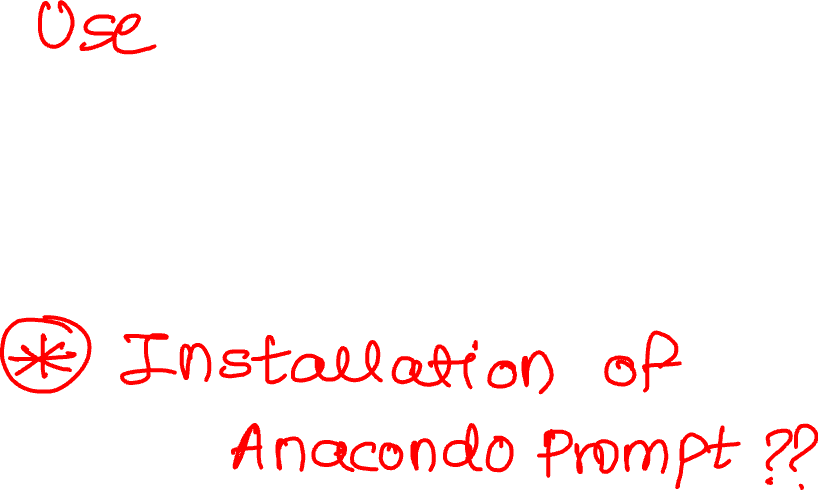 Use
Installation of
Anacondo Prompt ??